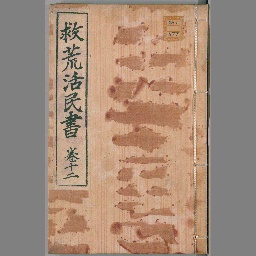 救荒活民書 卷十二